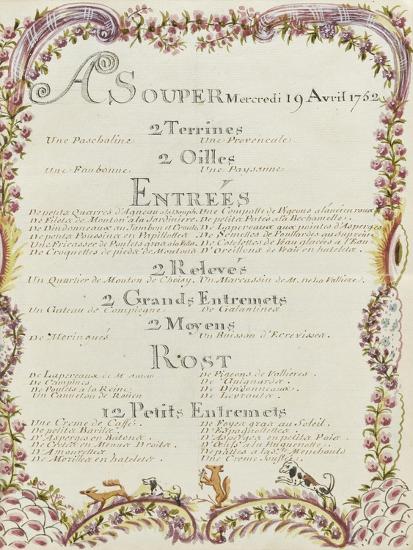 A SOUPER Mercredi 19 Avril 1752
2 Terrines
Une Paschaline Une Provençale
2 Oilles
Une Faubonne Une Paysanne
ENTRÉES
De petits Quarrés d'Agneau a la Une Compotte de Pigeons
De Filets de Mouton a la Jardiniere De petits Patés a la Bechamelle
De Dindonneaux au Jambon De Lapereaux aux pointes d'Asperges
De petits Poussins en Papillottes De Semelles de Poullardes au Suprême
Une Fricassee de Poulets gras De Cotelettes de Veau glacées a l'Eau
De Croquettes de pieds de Mouton D'Oreillons de Veau en hatelets
2 Relevés
Un Quartier de Mouton de Choisy Un Marcassin de M. de la Valliere
2 Grands Entremets
Un Gateau de Compiegne De Galantines
2 Moyens
De Meringues Un Buisson d'Ecrevisses
ROST
De Lapereaux de De Pigeons de Vallieres
De Campines De Guignards
De Poulets a la Reine De Dindonneaux
Un Canneton de Roüen De Levrauts
12 Petits Entremets
Une Creme de Caffé De Foyes gras au Soleil
De petits Barilles D'Espagnolettes
D'Asperges en Batons D'Asperges en petits Pois
De Crêtes en Menus Droits D'Oeufs a la Huguenotte
D'Amourettes
De Morilles en hatelets Une Creme Souflée